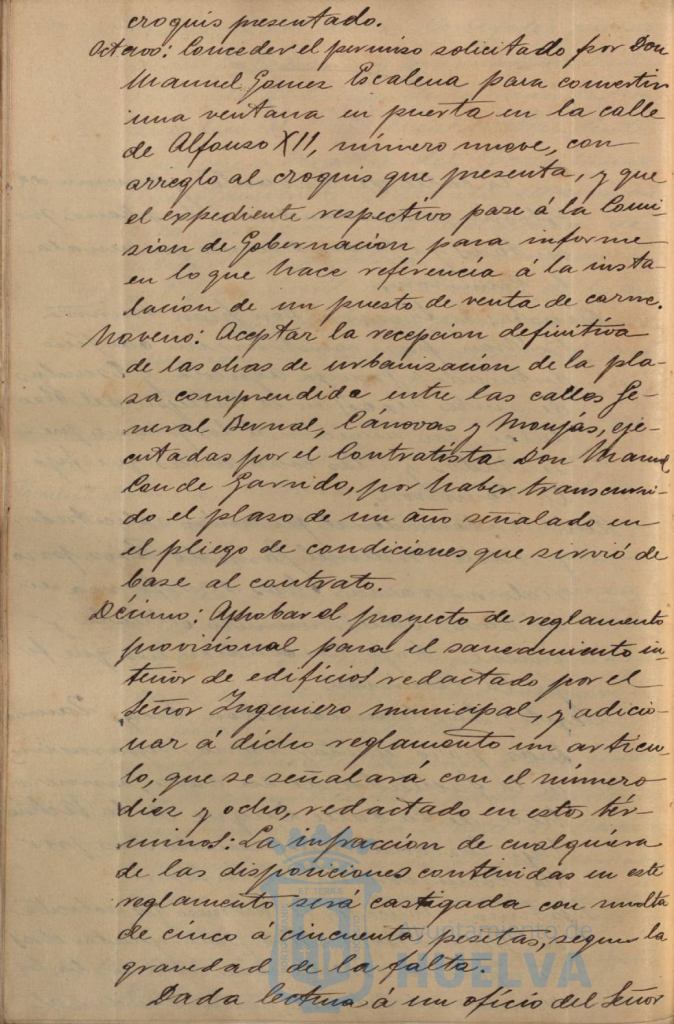 croquis presentado.
Octavo: Conceder el permiso solicitado por Don
Manuel Gomez Escalena para convertir
una ventana en puerta en la calle
de Alfonso XII, número nueve, con
arreglo al croquis que presenta, y que
el expediente respectivo pase á la Comi-
sion de Gobernacion para informe
en lo que hace referencia á la insta-
lacion de un puesto de venta de carne.
Noveno: Aceptar la recepcion definitiva
de las obras de urbanización de la pla-
za comprendida entre las calles Ge-
neral Bernal, Cánovas y Monjas, eje-
cutadas por el Contratista Don Manuel
Conde Garrido, por haber transcurri-
do el plazo de un año señalado en
el pliego de condiciones que sirvió de
base al contrato.
Décimo: Aprobar el proyecto de reglamento
provisional para el saneamiento in-
terior de edificios redactado por el
Señor Ingeniero municipal, y adicio-
nar á dicho reglamento un articu-
lo, que se señalará con el número
diez y ocho, redactado en estos tér-
minos: La infracción de cualquiera
de las disposiciones contenidas en este
reglamento será castigada con multa
de cinco á cincuenta pesetas, segun la
gravedad de la falta.
Dada lectura á un oficio del Señor
Ayuntamiento de
HUELVA